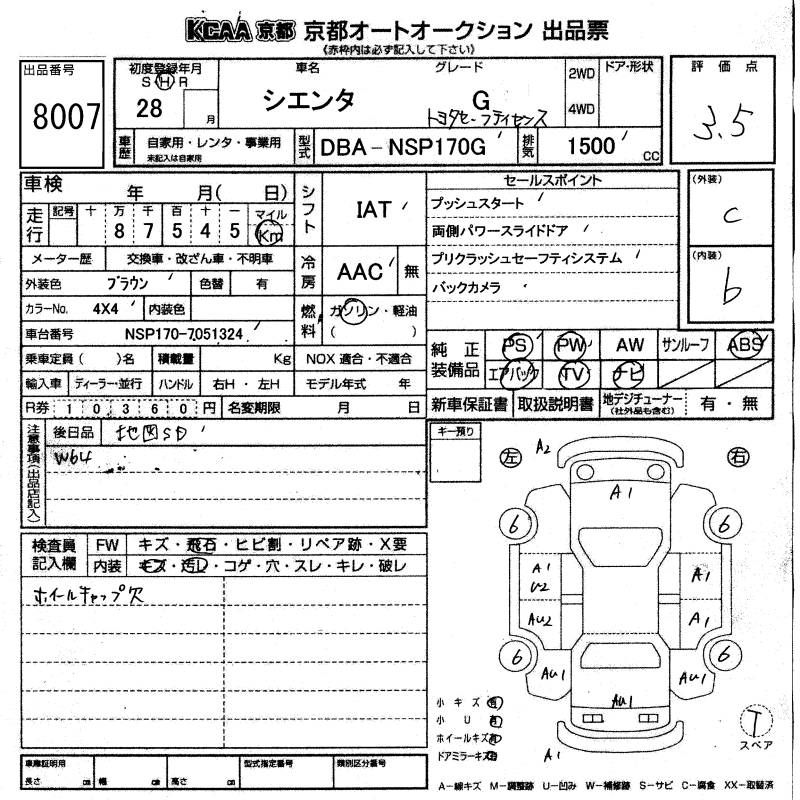 KCAA 京都 京都オートオークション 出品票
《赤枠内は必ず記入して下さい》
出品番号 8007
初度登録年月 S H R 28 月
車名 シエンタ
グレード G トヨタセーフティセンス
2WD 4WD
ドア・形状
評価点 3.5
車歴 自家用・レンタ・事業用 未記入は自家用
型式 DBA-NSP170G
排気 1500 CC
車検 年 月( 日)
走行 記号 十 万 千 百 十 一 マイル
8 7 5 4 5 Km
メーター歴 交換車・改ざん車・不明車
外装色 ブラウン 色替 有
カラーNo. 4X4 内装色
車台番号 NSP170-7051324
乗車定員( )名 積載量 Kg NOX 適合・不適合
輸入車 ディーラー・並行 ハンドル 右H・左H モデル年式 年
R券 10360円 名変期限 月 日
シフト IAT
冷房 AAC 無
燃料 ガソリン・軽油 ( )
セールスポイント
プッシュスタート
両側パワースライドドア
プリクラッシュセーフティシステム
バックカメラ
(外装) C
(内装) b
純正装備品 PS PW AW サンルーフ ABS
エアバック TV ナビ
新車保証書 取扱説明書 地デジチューナー (社外品も含む) 有・無
注意事項(出品店記入)
後日品 地図SD
W64
キー預り
検査員記入欄 FW キズ・飛石・ヒビ割・リペア跡・X要
内装 キズ・汚レ・コゲ・穴・スレ・キレ・破レ
ホイールキャップ欠
左 右
A2
A1
6 6
A1 U2 A1
AU2 A1
6 6
AU1 AU1
AU1
A1
小キズ 有
小U 有
ホイールキズ 有
ドアミラーキズ 有
T スペア
車庫証明用 長さ cm 幅 cm 高さ cm
型式指定番号
類別区分番号
A-線キズ M-調整跡 U-凹み W-補修跡 S-サビ C-腐食 XX-取替済